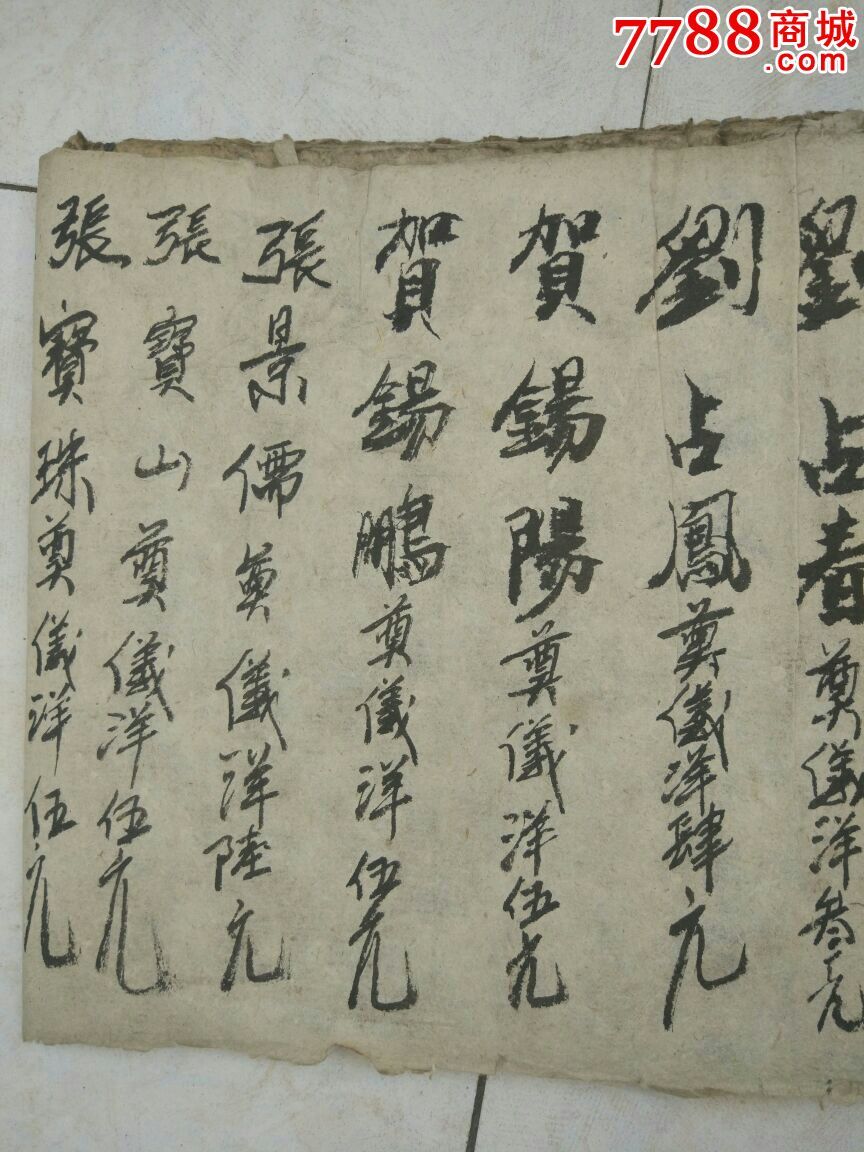 7788商城
.com
劉占春奠儀洋叁元
劉占鳳奠儀洋肆元
賀錫陽奠儀洋伍元
賀錫鵬奠儀洋伍元
張景儒奠儀洋陸元
張寶山奠儀洋伍元
張寶珠奠儀洋伍元